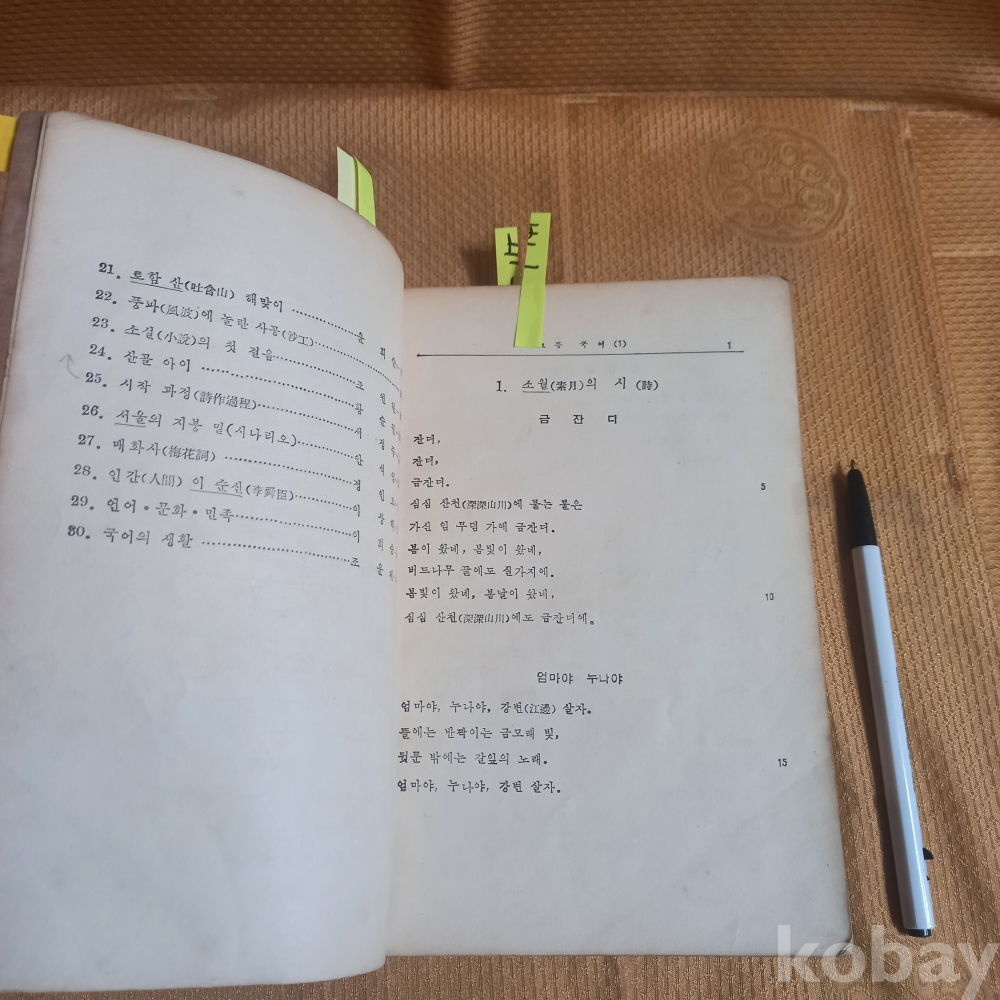 21. 토함 산(吐含山) 해맞이 ……………… 윤
22. 풍파(風波)에 놀란 사공(沙工) ……………… 희 승
23. 소설(小說)의 첫 걸음 ……………… 조
24. 산골 아이 ……………… 황
25. 시작 과정(詩作過程) ……………… 서 정 주
26. 서울의 지붕 밑(시나리오) ……………… 안 석
27. 매화사(梅花詞) ……………… 정 인
28. 인간(人間) 이 순신(李舜臣) ……………… 이
29. 언어·문화·민족 ……………… 이 희 승
30. 국어의 생활 ……………… 조 윤 제
고등 국어 (1) 1
1. 소월(素月)의 시 (詩)
금 잔 디
잔디,
잔디,
금잔디.
5
심심 산천(深深山川)에 붙는 불은
가신 임 무덤 가에 금잔디.
봄이 왔네, 봄빛이 왔네,
버드나무 끝에도 실가지에.
봄빛이 왔네, 봄날이 왔네,
10
심심 산천(深深山川)에도 금잔디에.
엄마야 누나야
엄마야, 누나야, 강변(江邊) 살자.
뜰에는 반짝이는 금모래 빛,
뒷문 밖에는 갈잎의 노래.
15
엄마야, 누나야, 강변 살자.
kobay